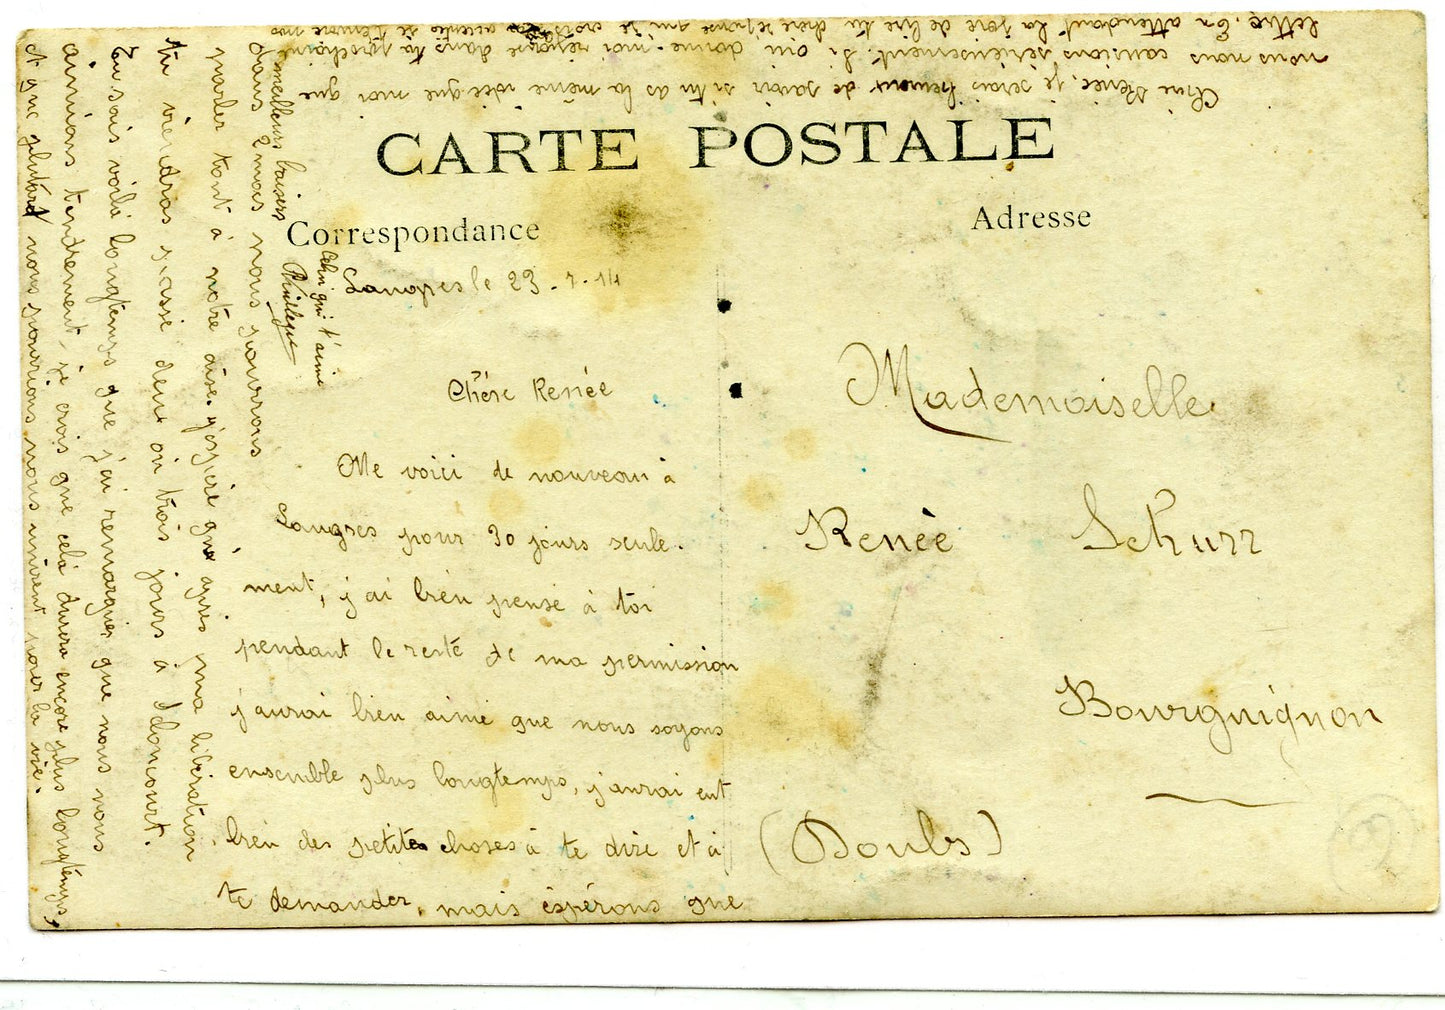 CARTE POSTALE
Correspondance
Adresse
Langres le 23-7-14
Chère Renée
Me voici de nouveau à
Langres pour 30 jours seule-
ment, j'ai bien pensé à toi
pendant le reste de ma permission
j'aurai bien aimé que nous soyons
ensemble plus longtemps, j'aurai eut
bien des petites choses à te dire et à
te demander, mais éspérons que
dans 2 mois nous pourrons
parler tout à notre aise. j'espère que après ma libération
tu viendras passé deux ou trois jours à Idoncourt.
Tu sais voilà longtemps que j'ai remarquer que nous nous
aimions tendrement, je crois que celà durera encore plus longtemps,
et que plutard nous pourrions nous unirent pour la vie.
Chère Renée, je serais heureux de savoir si tu as la même idée que moi que
nous nous causions sérieusement. Si oui donne-moi réponse dans ta prochaine
lettre. En attendant la joie de lire ta chère réponse qui je crois sera
meilleurs baisers
Celui qui t'aime
Philippe
Mademoiselle
Renée Schurr
Bourguignon
(Doubs)